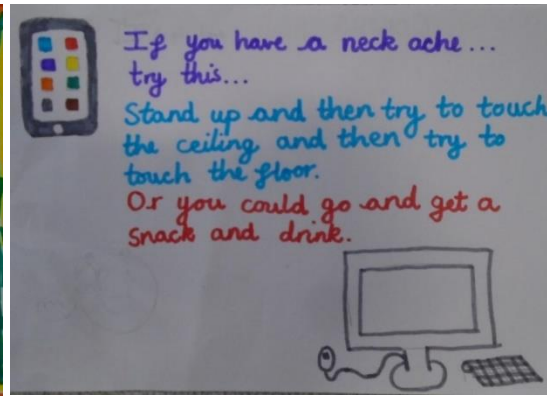 If you have a neck ache...
try this...
Stand up and then try to touch
the ceiling and then try to
touch the floor.
Or you could go and get a
snack and drink.